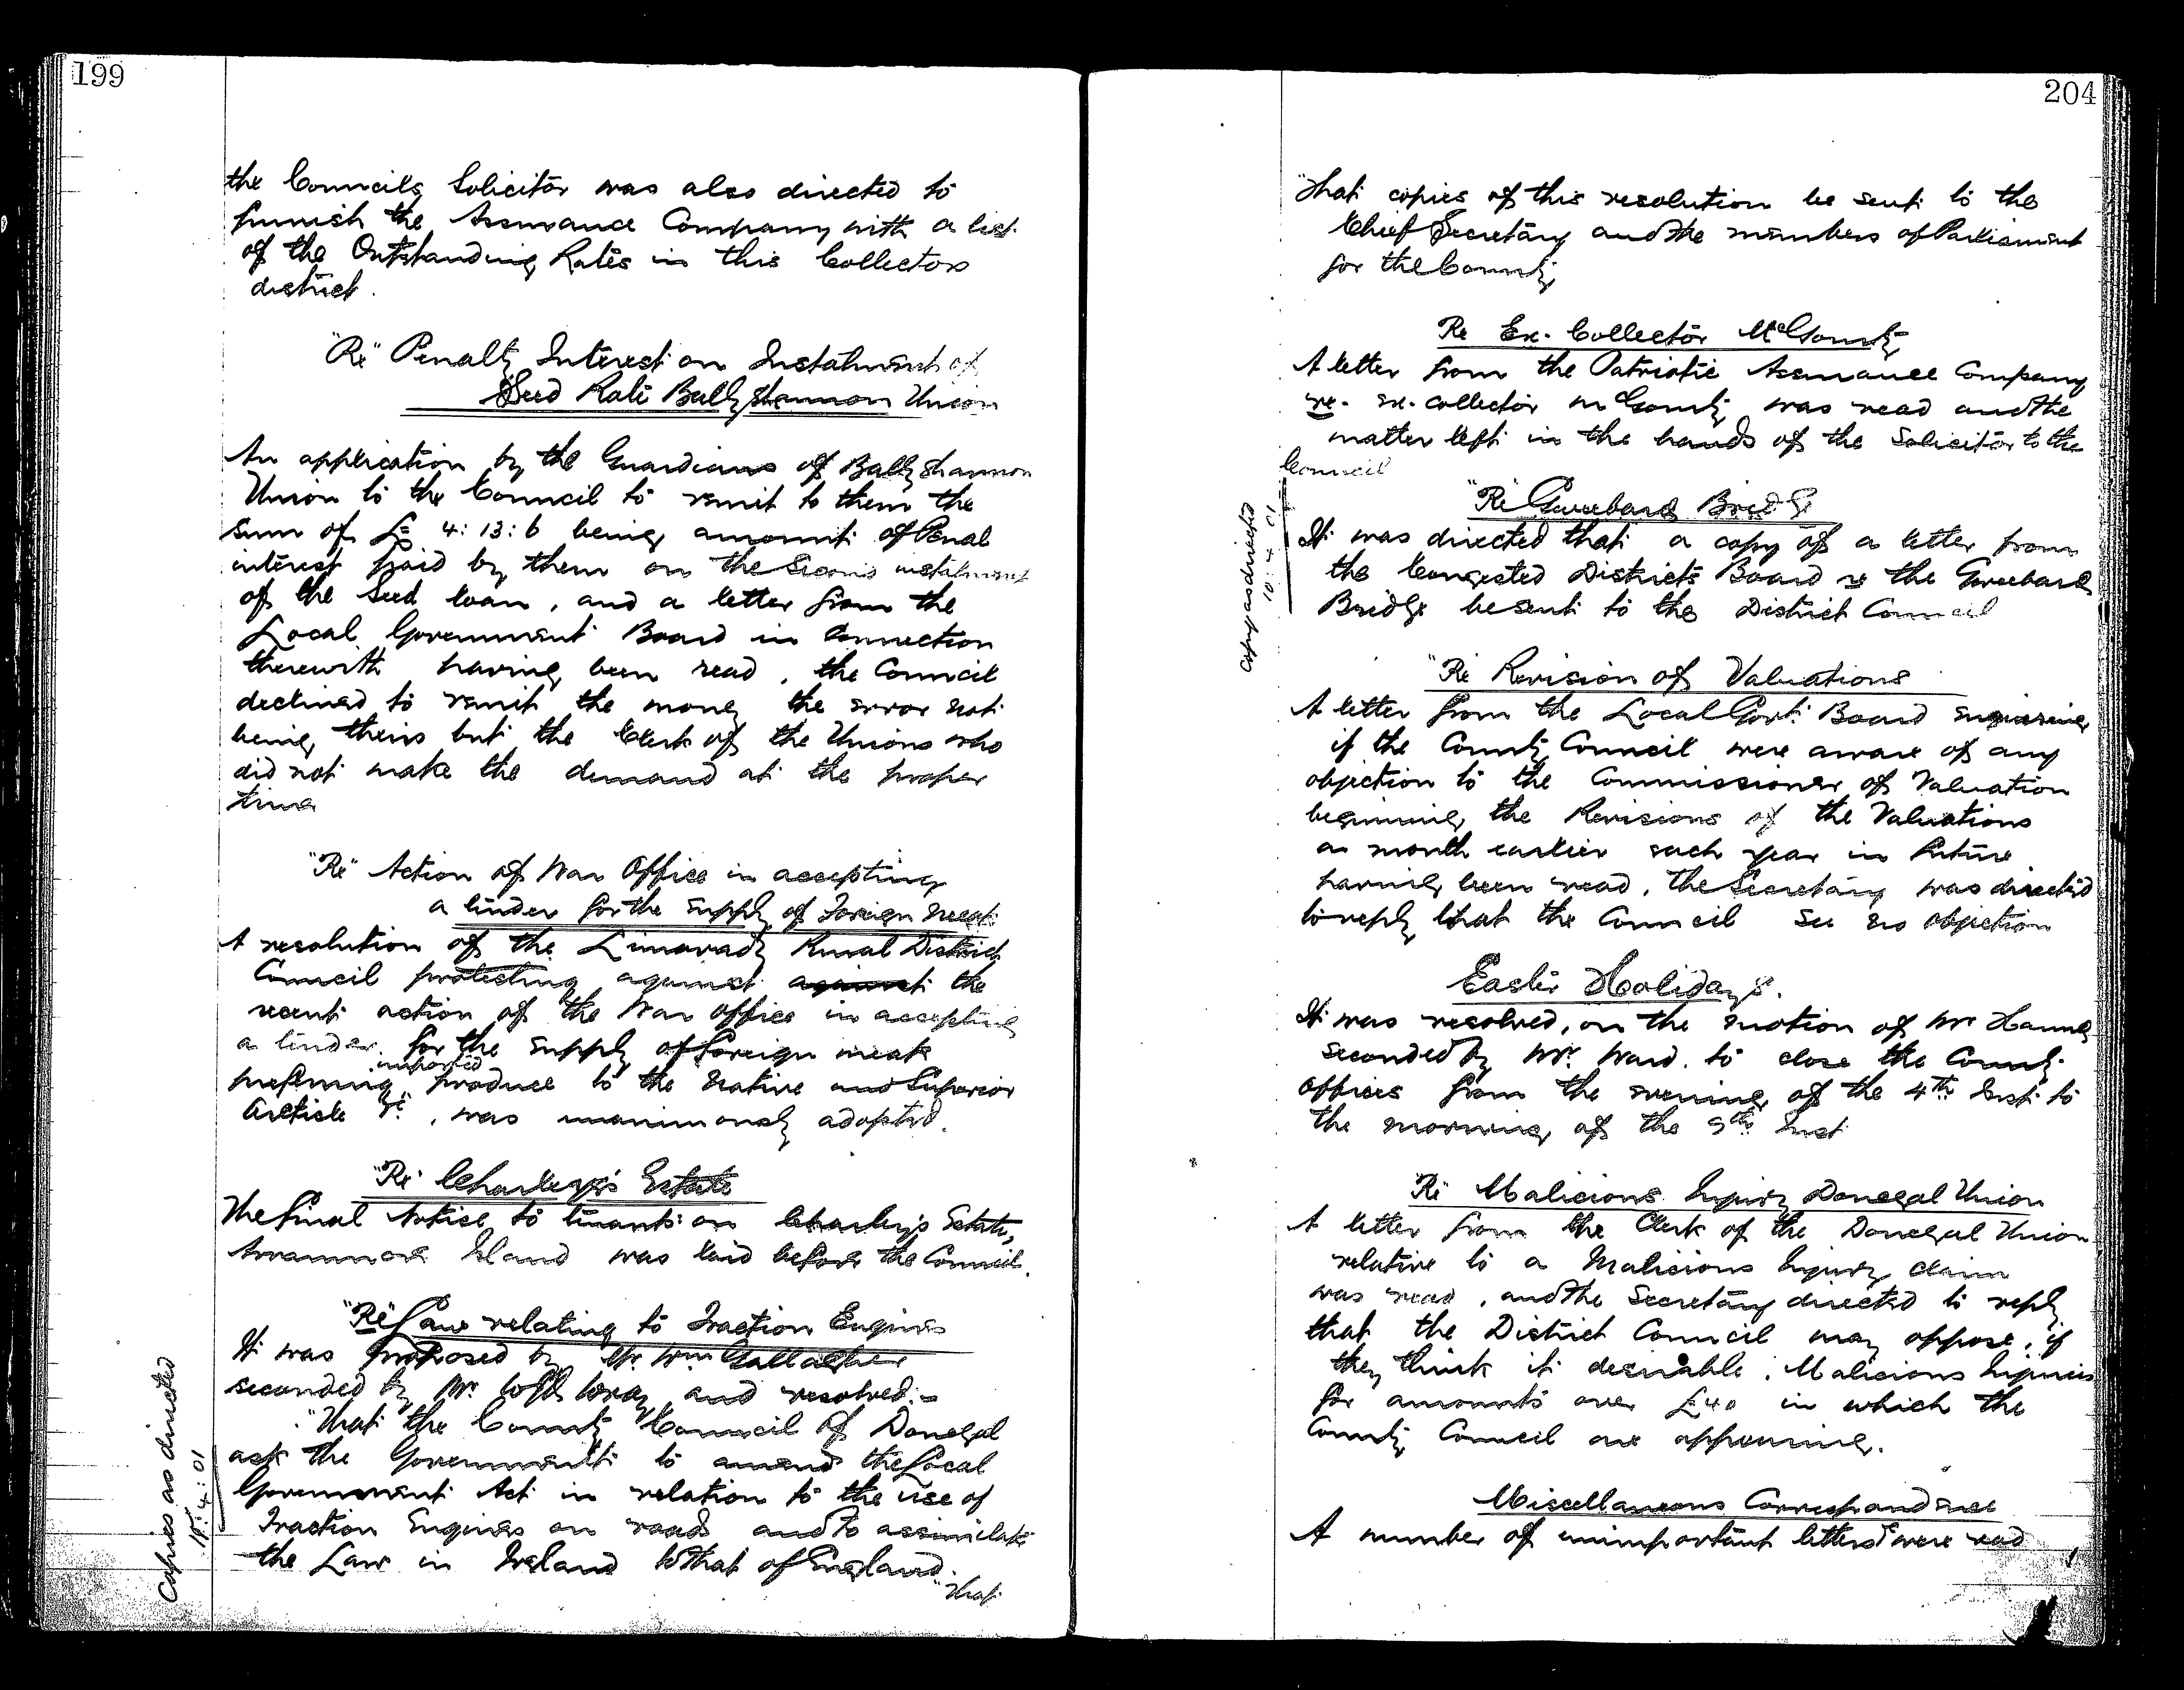 199
the Councils Solicitor was also directed to
furnish the Assurance Company with a list
of the Outstanding Rates in this Collectors
district.
"Re" Penalty Interest on Instalment of
Seed Rate Ballyshannon Union
An application by the Guardians of Ballyshannon
Union to the Council to remit to them the
sum of £ 4:13:6 being amount of Penal
interest paid by them on the Second instalment
of the Seed loan, and a letter from the
Local Government Board in Connection
therewith having been read, the Council
declined to remit the money the error not
being theirs but the Clerk of the Unions who
did not make the demand at the proper
time
"Re" Action of War Office in accepting
a tender for the supply of Foreign Meat
A resolution of the Limavady Rural District
Council protesting against against the
recent action of the War Office in accepting
a tender for the supply of foreign meat
imported
preferring produce to the Native and Superior
Article &c, was unanimously adopted.
"Re" Charley's Estate
The final Notice to tenants on Charley's Estate,
Arranmore Island was laid before the Council.
"Re" Law relating to Traction Engines
It was proposed by Mr. Wm Gallagher
seconded by Mr. Wray and resolved:-
"That the County Council of Donegal
ask the Government to amend the Local
Government Act in relation to the use of
Traction Engines on roads and to assimilate
the Law in Ireland to that of England.
"That
Copies as directed
4:01
204
"That copies of this resolution be sent to the
Chief Secretary and the members of Parliament
for the County
Re Ex-Collector McGounty
A letter from the Patriotic Assurance Company
re- ex-collector McGounty was read and the
matter left in the hands of the Solicitor to the
Council
"Re Gweebarra Bridge
It was directed that a copy of a letter from
the Congested Districts Board re the Gweebarra
Bridge be sent to the District Council
Copy as directed
10.4.01
"Re Revision of Valuations
A letter from the Local Govt. Board enquiring
if the County Council were aware of any
objection to the Commissioner of Valuation
beginning the Revisions of the Valuations
a month earlier each year in future
having been read, the Secretary was directed
to reply that the Council see no objection
Easter Holidays.
It was resolved, on the motion of Mr Hanna
seconded by Mr. Ward. to close the County
offices from the evening of the 4th Inst. to
the morning of the 9th Inst
Re Malicious Injury Donegal Union
A letter from the Clerk of the Donegal Union
relative to a Malicious Injury claim
was read, and the Secretary directed to reply
that the District Council may oppose, if
they think it desirable, Malicious Injuries
for amounts over £40 in which the
County Council are appearing.
Miscellaneous Correspondence
A number of unimportant letters were read